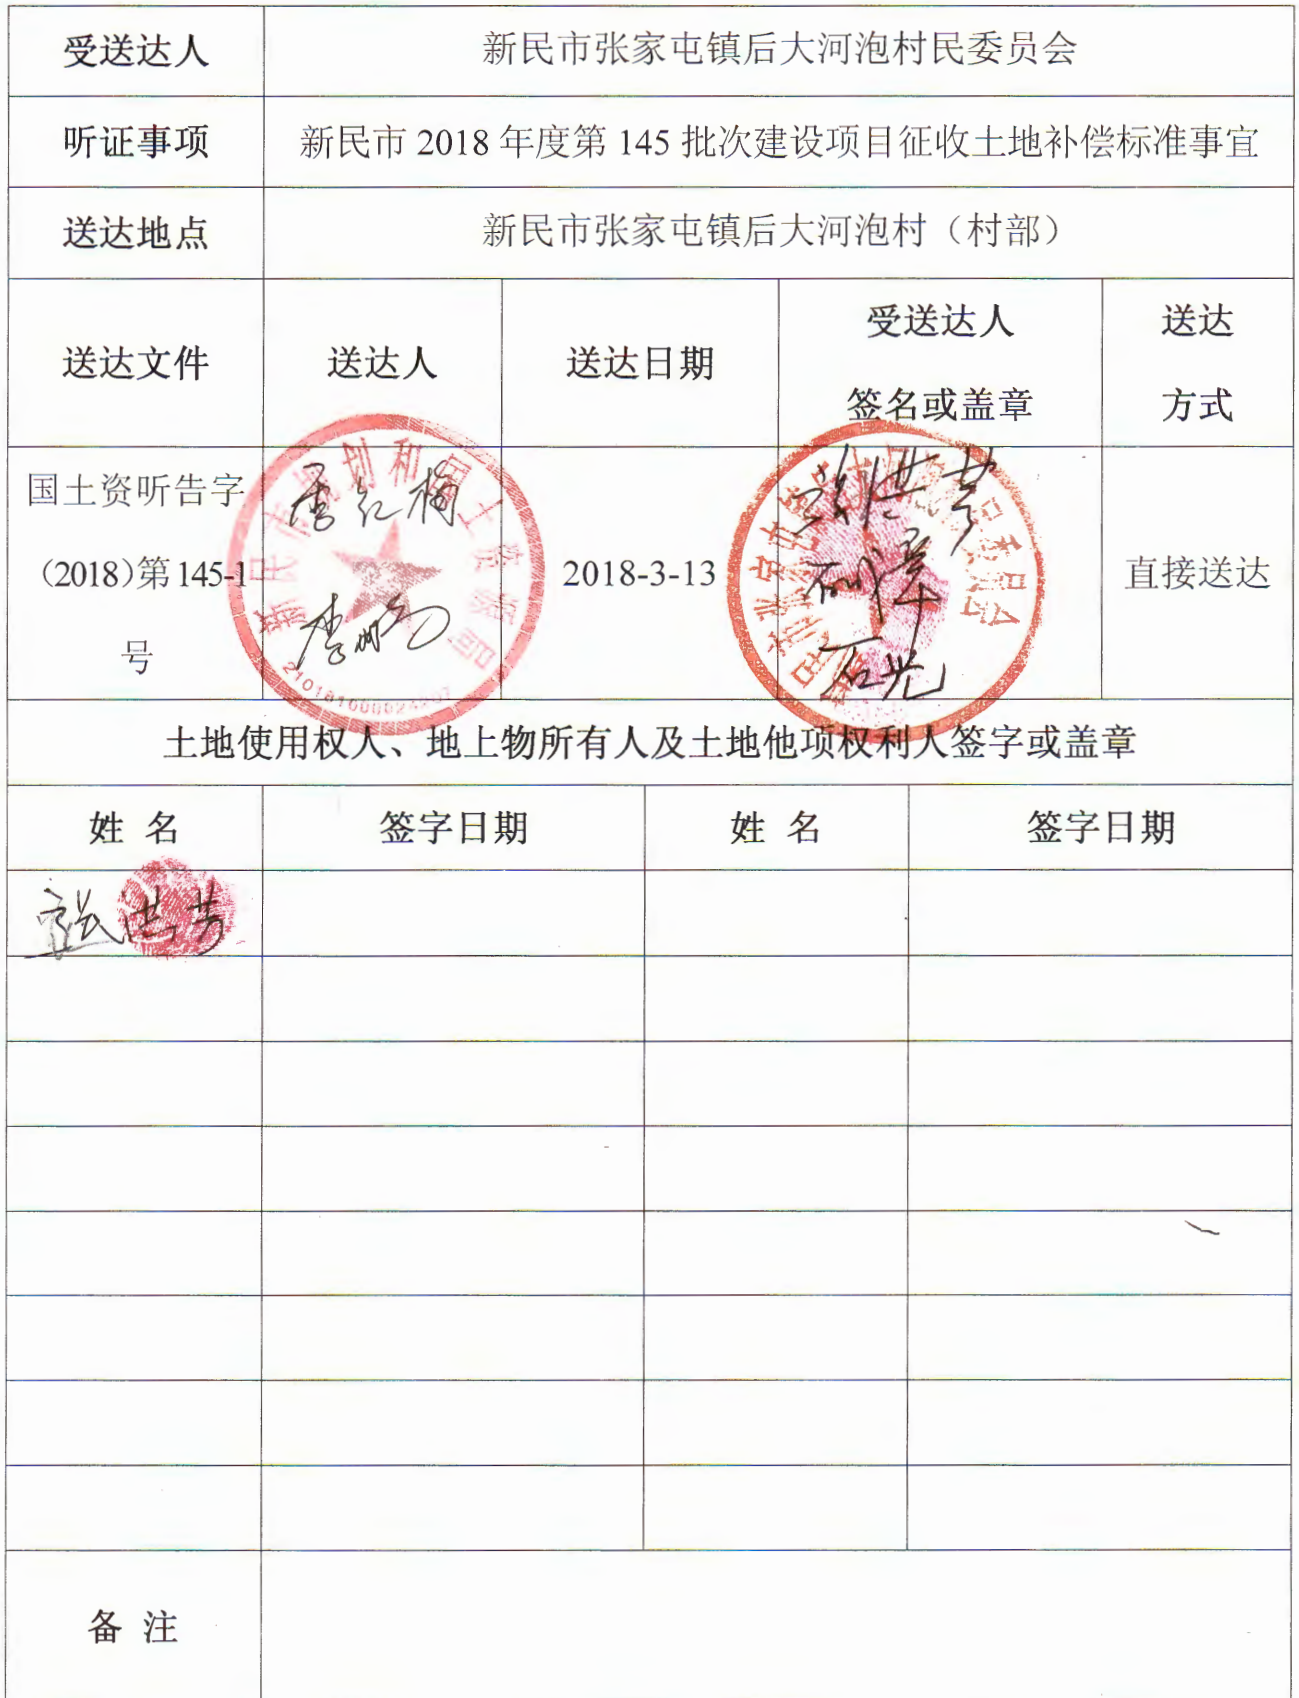 受送达人 新民市张家屯镇后大河泡村民委员会
听证事项 新民市 2018 年度第 145 批次建设项目征收土地补偿标准事宜
送达地点 新民市张家屯镇后大河泡村（村部）
送达文件 送达人 送达日期 受送达人 送达
签名或盖章 方式
国土资听告字
（2018）第 145-1 2018-3-13 直接送达
号
土地使用权人、地上物所有人及土地他项权利人签字或盖章
姓 名 签字日期 姓 名 签字日期
备 注